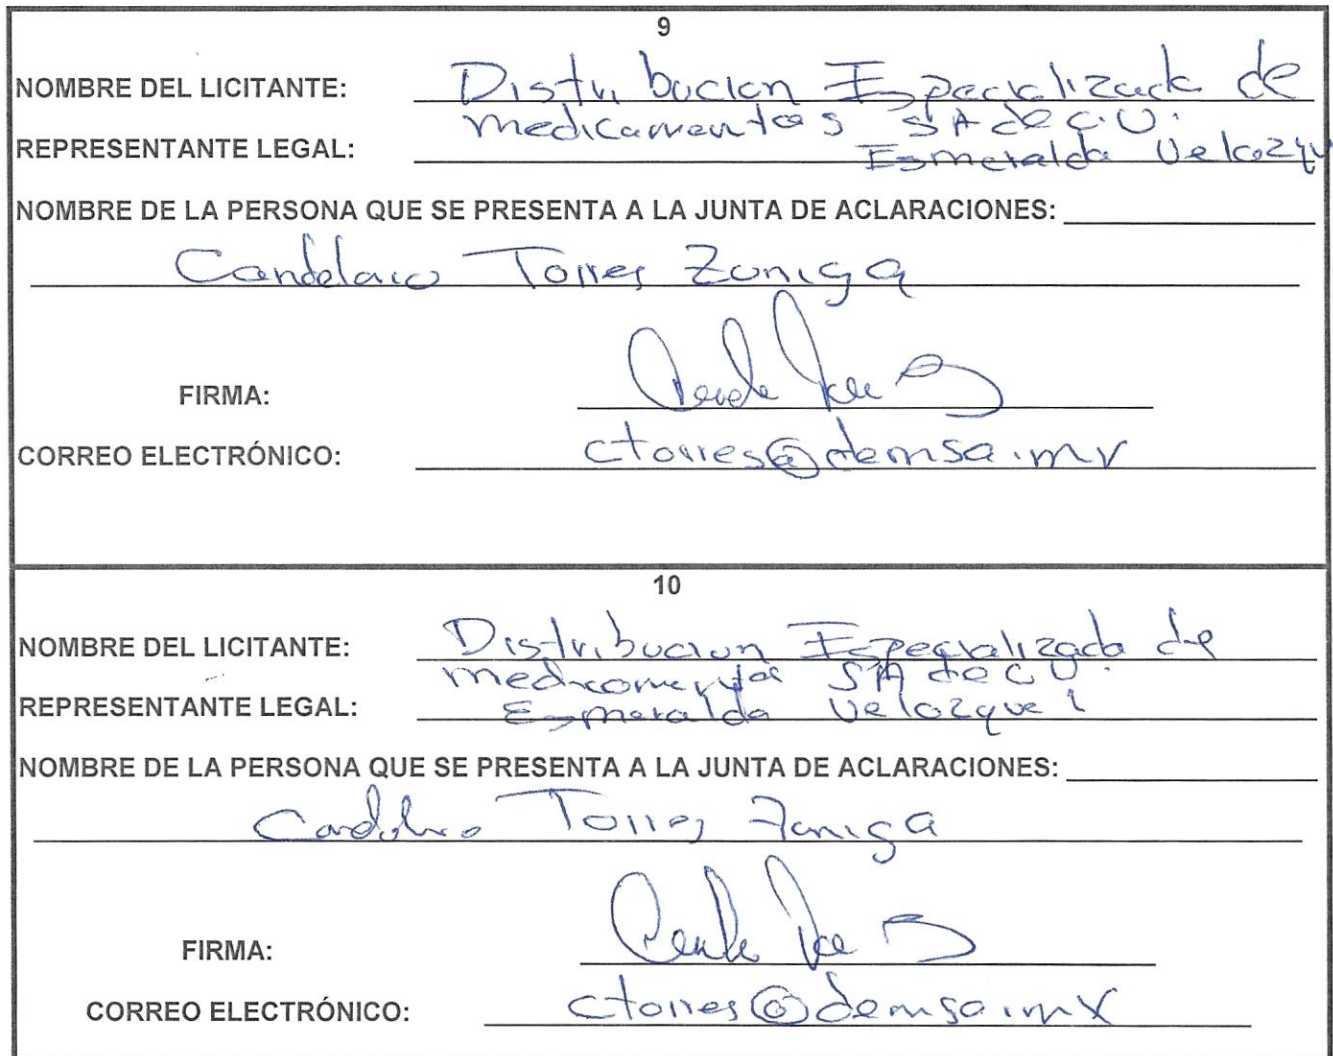 9
NOMBRE DEL LICITANTE: Distribucion Especializada de
medicamentos SA de C.V.
REPRESENTANTE LEGAL: Esmeralda Velazqu
NOMBRE DE LA PERSONA QUE SE PRESENTA A LA JUNTA DE ACLARACIONES:
Candelario Torres Zuniga
FIRMA:
CORREO ELECTRÓNICO: ctorres@demsa.mx
10
NOMBRE DEL LICITANTE: Distribucion Especializada de
medicamentos SA de C.V.
REPRESENTANTE LEGAL: Esmeralda Velazquez
NOMBRE DE LA PERSONA QUE SE PRESENTA A LA JUNTA DE ACLARACIONES:
Candelario Torres Zuniga
FIRMA:
CORREO ELECTRÓNICO: ctorres@demsa.mx